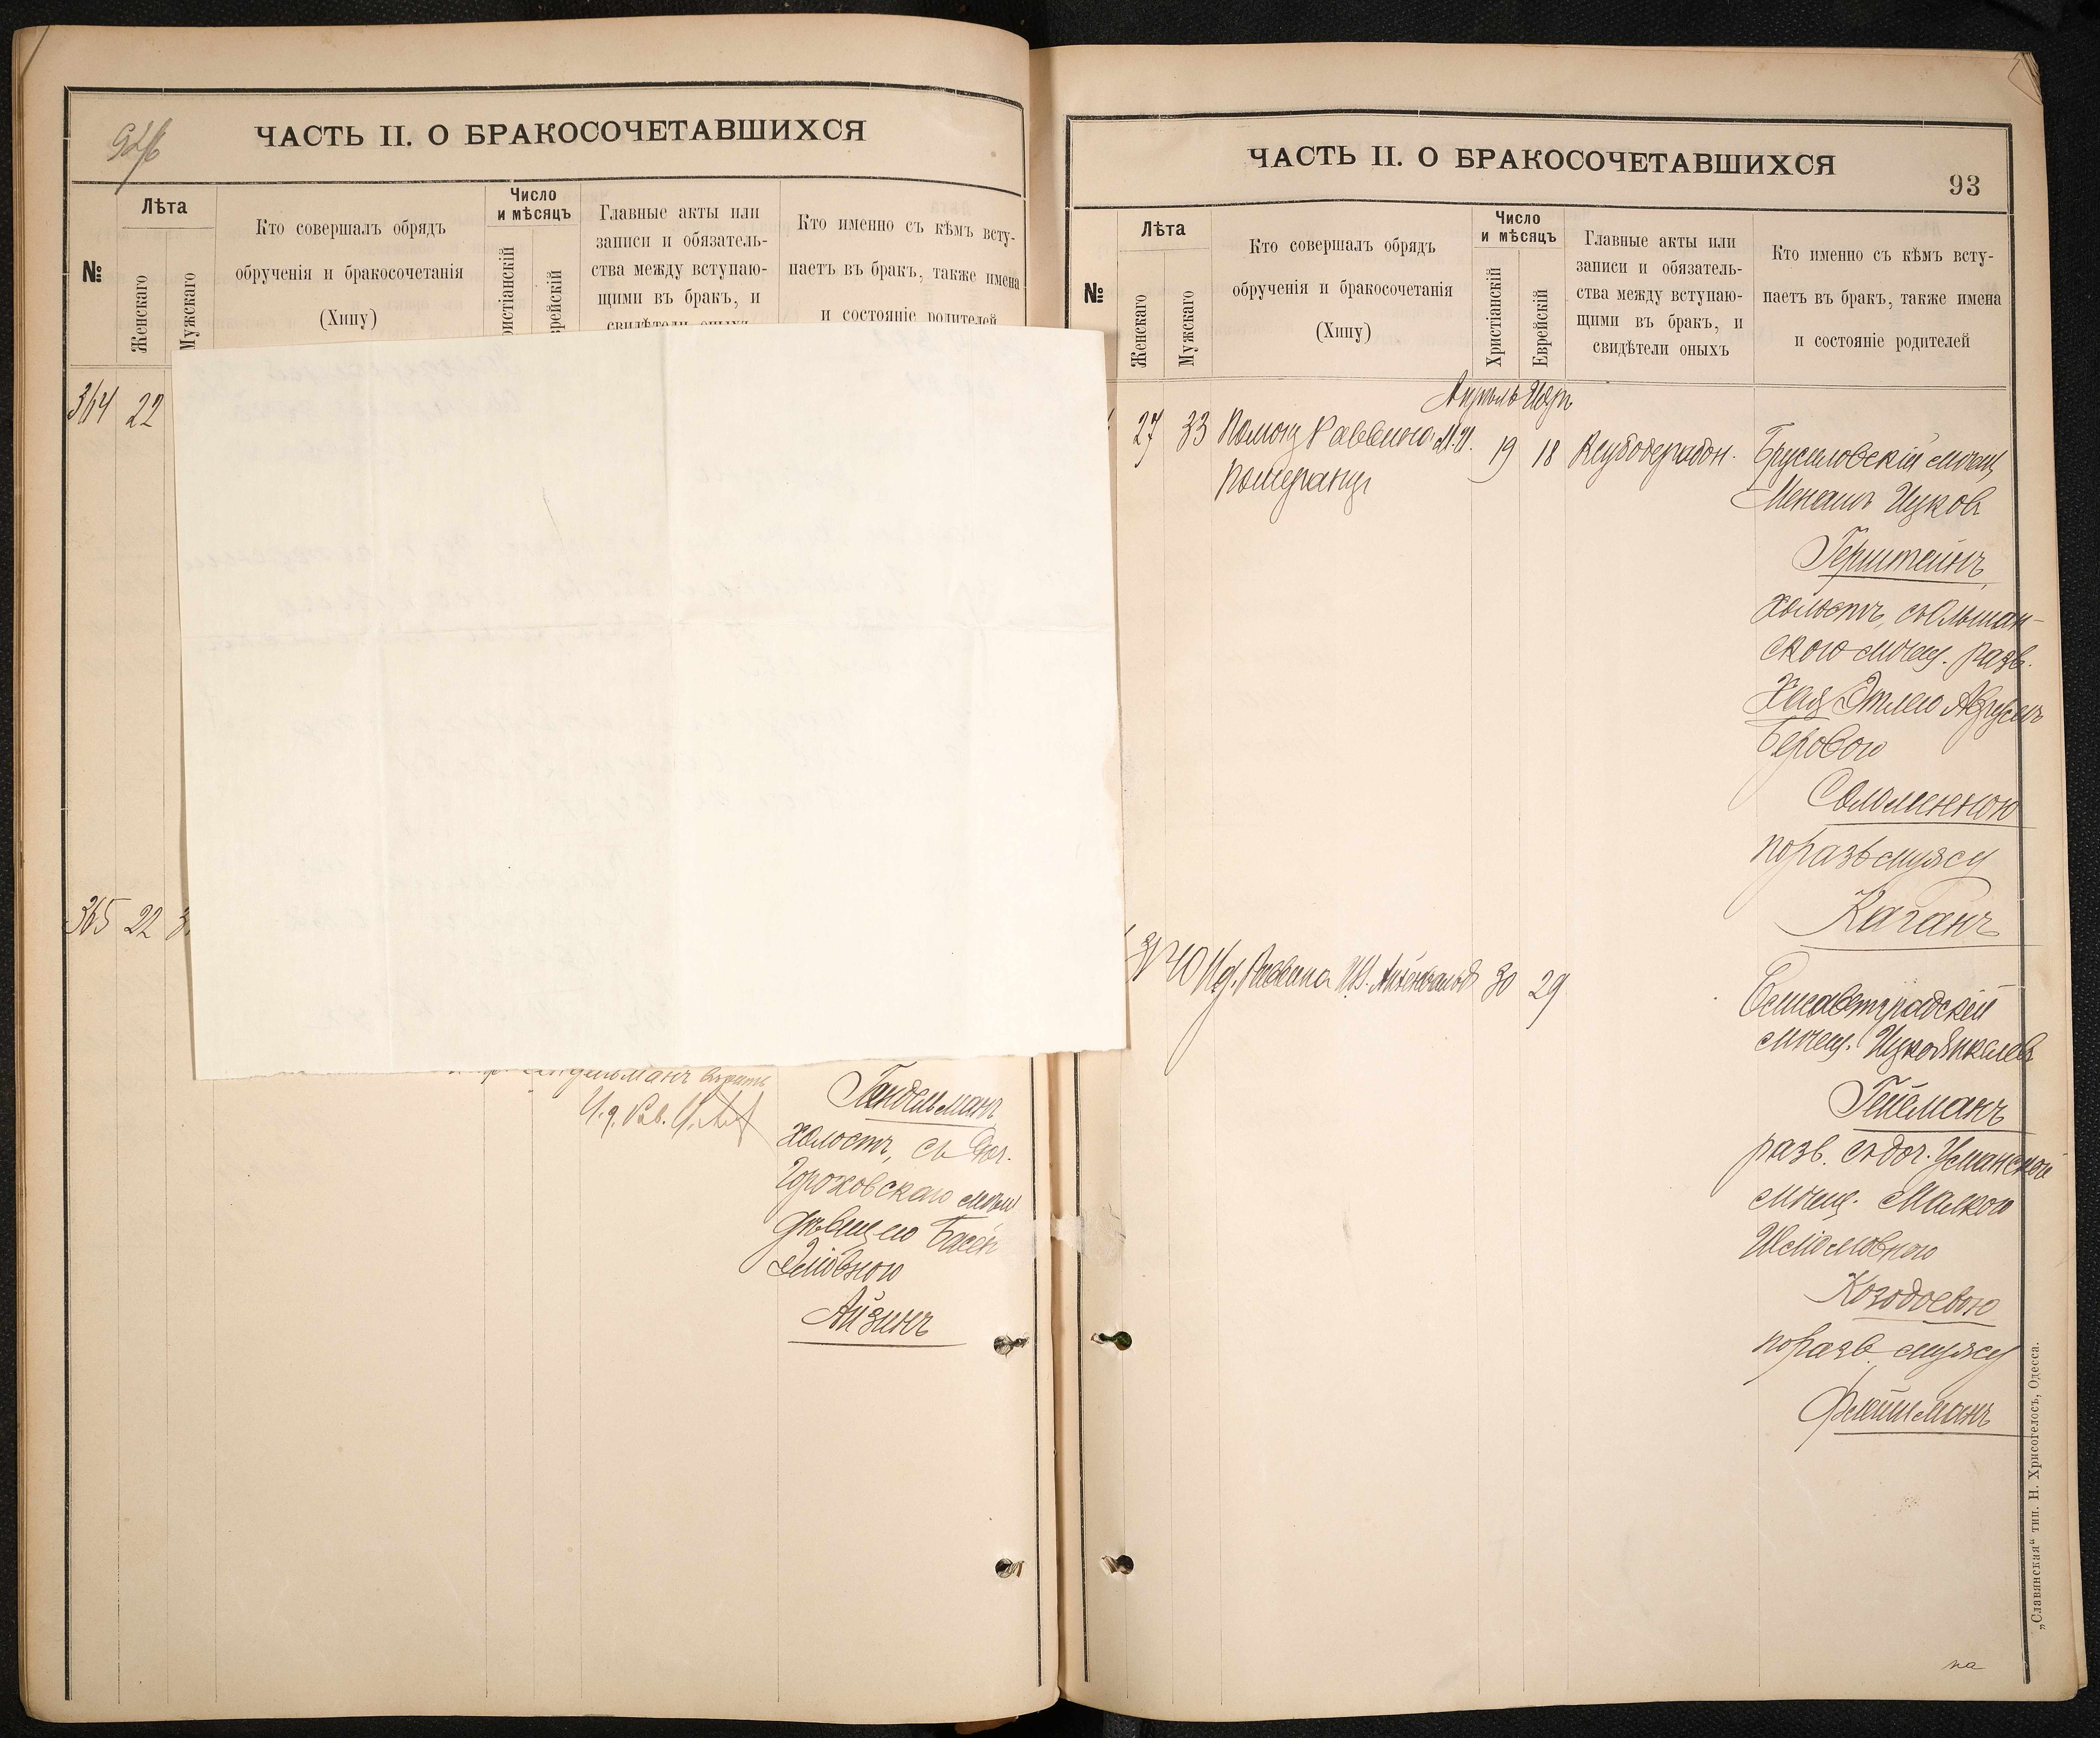 ЧАСТЬ II. О БРАКОСОЧЕТАВШИХСЯ
№
Лѣта
Женскаго
Мужскаго
Кто совершалъ обрядъ
обрученія и бракосочетанія
(Хипу)
Число
и мѣсяцъ
ристіанскій
рейскій
Главные акты или
записи и обязатель-
ства между вступаю-
щими въ бракъ, и
свидѣтели оныхъ
Кто именно съ кѣмъ всту-
паетъ въ бракъ, также имена
и состояніе родителей
364 22
365 22
Гандельманъ
холостъ, съ доч.
Гороховскаго мѣщ
дѣвицею Басей
Айзинъ
ЧАСТЬ II. О БРАКОСОЧЕТАВШИХСЯ
93
№
Лѣта
Женскаго
Мужскаго
Кто совершалъ обрядъ
обрученія и бракосочетанія
(Хипу)
Число
и мѣсяцъ
Христіанскій
Еврейскій
Главные акты или
записи и обязатель-
ства между вступаю-
щими въ бракъ, и
свидѣтели оныхъ
Кто именно съ кѣмъ всту-
паетъ въ бракъ, также имена
и состояніе родителей
Апрѣль Іяръ
27 33 Помощ Раввина М.И.
Померанцъ
19 18
Брусиловскій мѣщ
Менашъ Ицков
Герштейнъ,
холостъ, съ Ольшан-
скою мѣщ. разв.
Хая Этлею
Беровою
Соломенною
по разв мужу
Каганъ
40 И.д. Раввина 30 29
Елисаветградскій
мѣщ. Ицко Янкелев
Гейсманъ
разв. съ доч. Уманской
мѣщ. Малкою
Козодоевою
по разв. мужу
Флейшманъ
на
„Славянская“ тип. Н. Хрисогелосъ, Одесса.